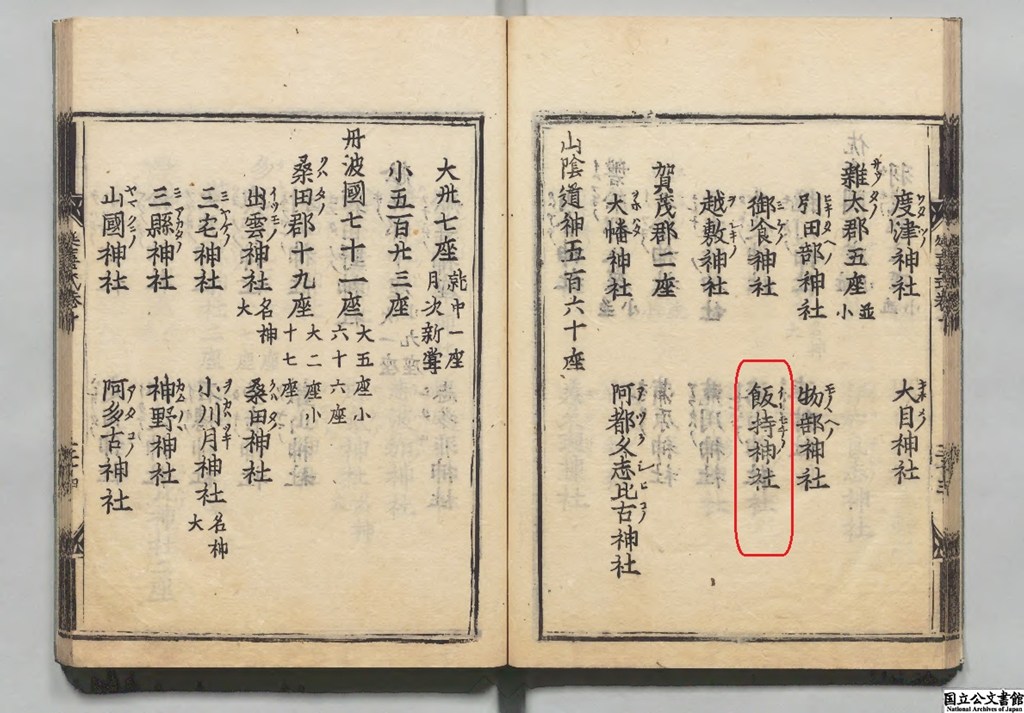 度津神社 大目神社
雜太郡五座 並小
引田部神社 物部神社
御食神社 飯持神社
越敷神社
賀茂郡二座
大幡神社 阿都久志比古神社
山陰道神五百六十座
大卅七座 就中一座月次新嘗
小五百廿三座
丹波國七十一座 大五座小六十六座
桑田郡十九座 大二座小十七座
出雲神社 名神大 桑田神社
三宅神社 小川月神社 名神大
三縣神社 神野神社
山國神社 阿多古神社
国立公文書館
National Archives of Japan